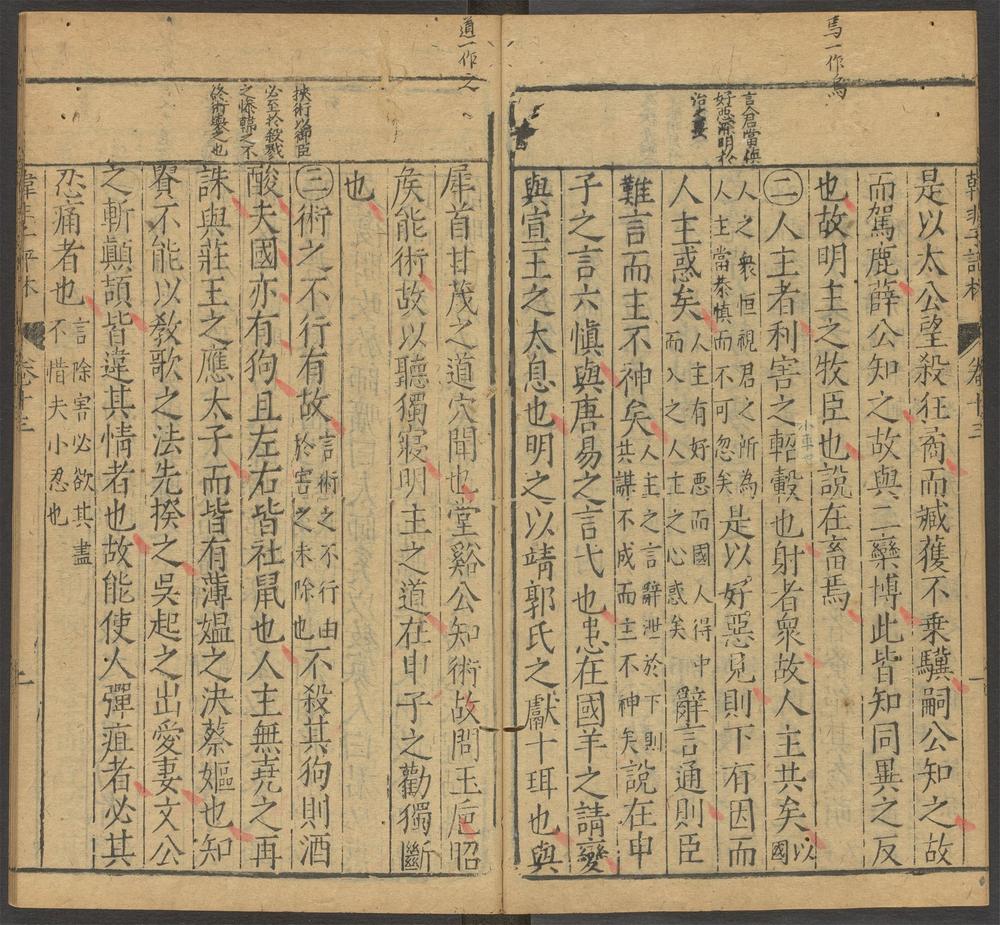 馬一作烏
言君當慎
好惡不明於
治之要
韓非子評林 卷十三 一
是以太公望殺狂矞而臧獲不乗驥嗣公知之故
而駕鹿薛公知之故與二欒博此皆知同異之反
也故明主之牧臣也說在畜焉
㊁人主者利害之軺轂也射者衆故人主共矣以國
小車也
人之衆恒視君之所為人主當恭慎而不可忽矣是以好惡見則下有因而
人主惑矣人主有好悪而國人得中而入之人主之心惑矣辭言通則臣
難言而主不神矣人主之言辭泄於下則共謀不成而主不神矣說在申
子之言六慎與唐易之言弋也患在國羊之請變
與宣王之太息也明之以靖郭氏之獻十珥也與
道一作之
挾術以御臣
必至於殺戮
之慘韓之不
終術娄之也
犀首甘茂之道穴聞也堂谿公知術故問玉巵昭
矦能術故以聽獨寢明主之道在申子之勸獨斷
也
㊂術之不行有故言術之不行由於害之未除也不殺其狗則酒
酸夫國亦有狗且左右皆社鼠也人主無堯之再
誅與莊王之應太子而皆有薄媼之決蔡嫗也知
貴不能以敎歌之法先揆之吳起之出愛妻文公
之斬顚頡皆違其情者也故能使人彈疽者必其
忍痛者也言除害必欲其盡不惜夫小忍也